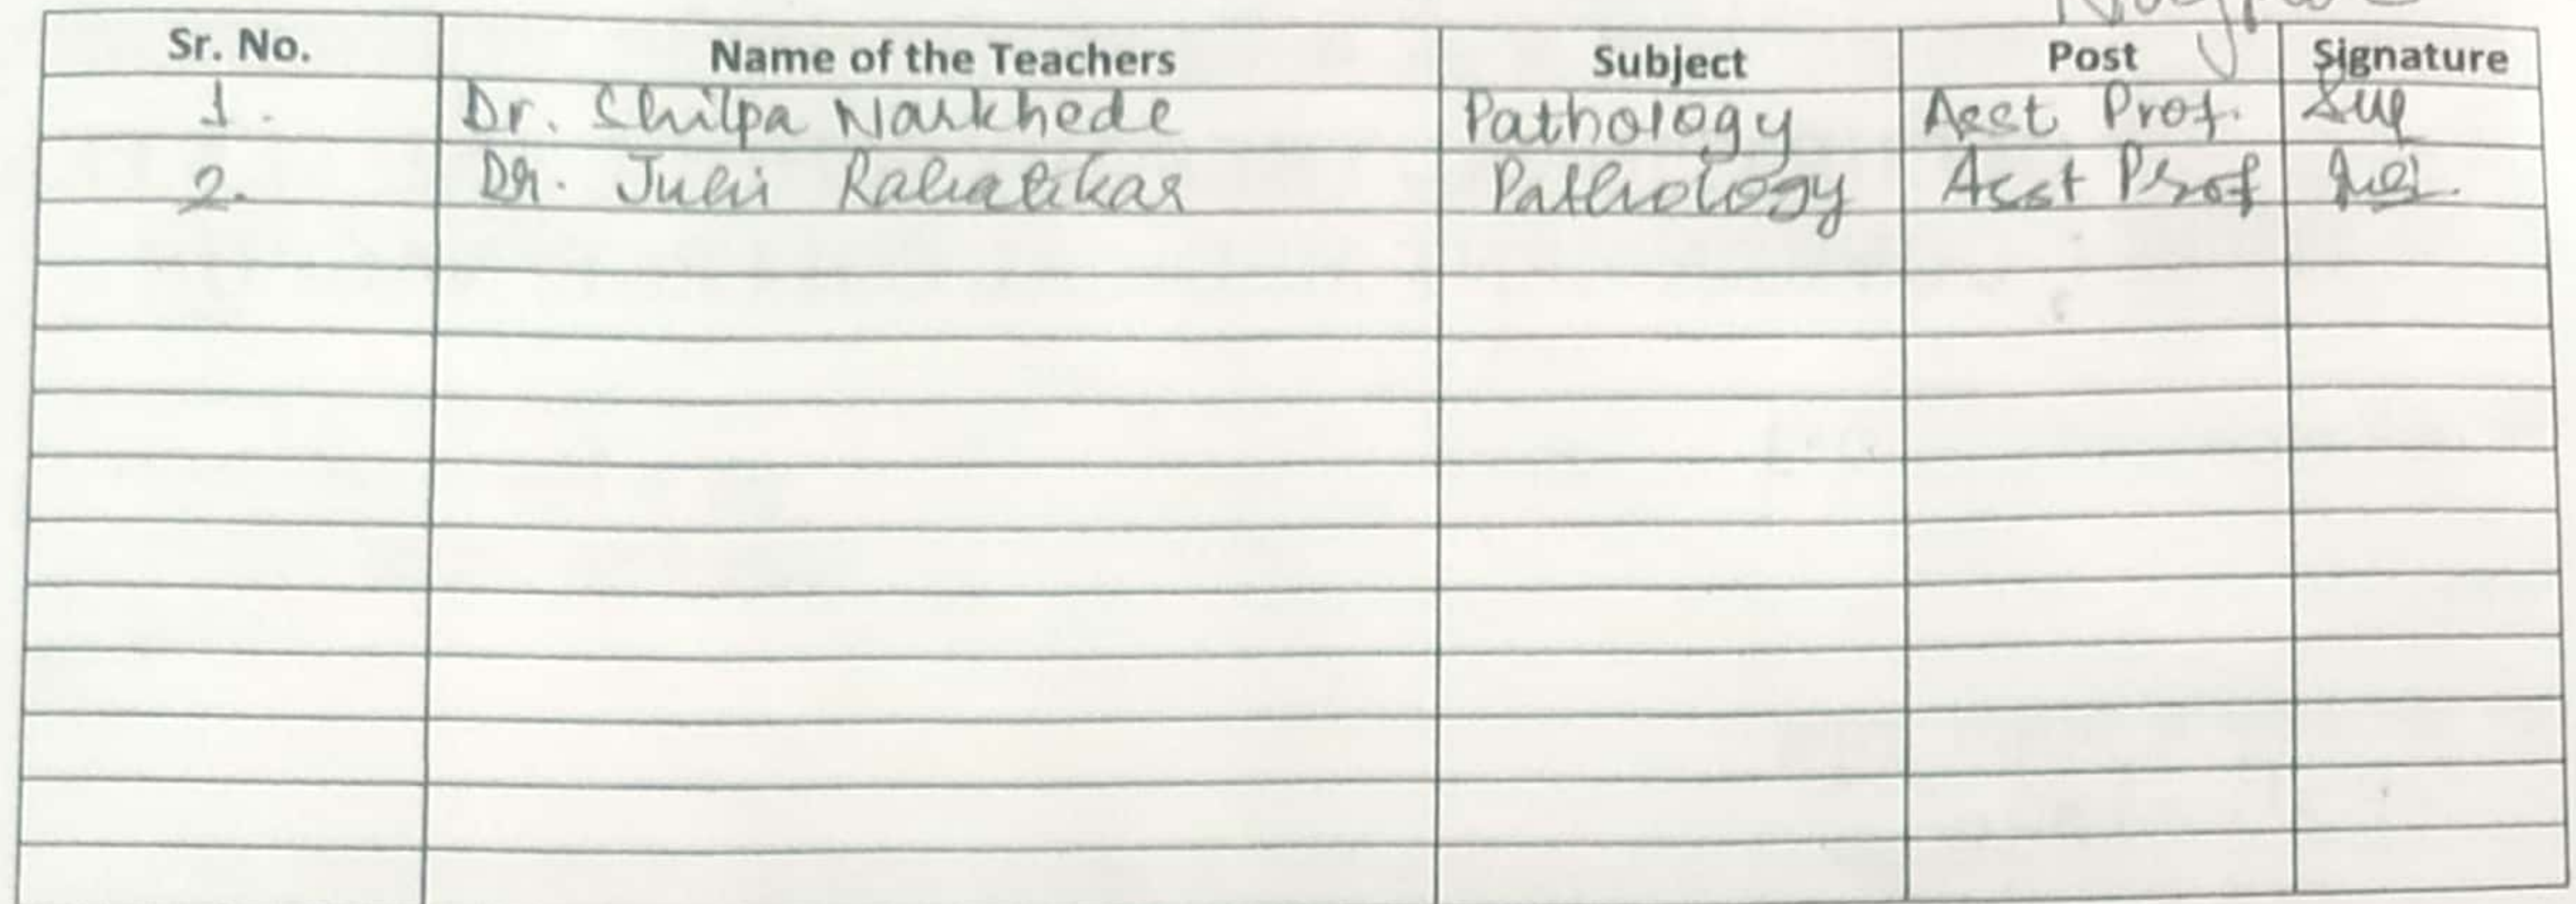 Sr. No. Name of the Teachers Subject Post Signature
1. Dr. Shilpa Narkhede Pathology Asst Prof.
2. Dr. Juhi Rahatikar Pathology Asst Prof